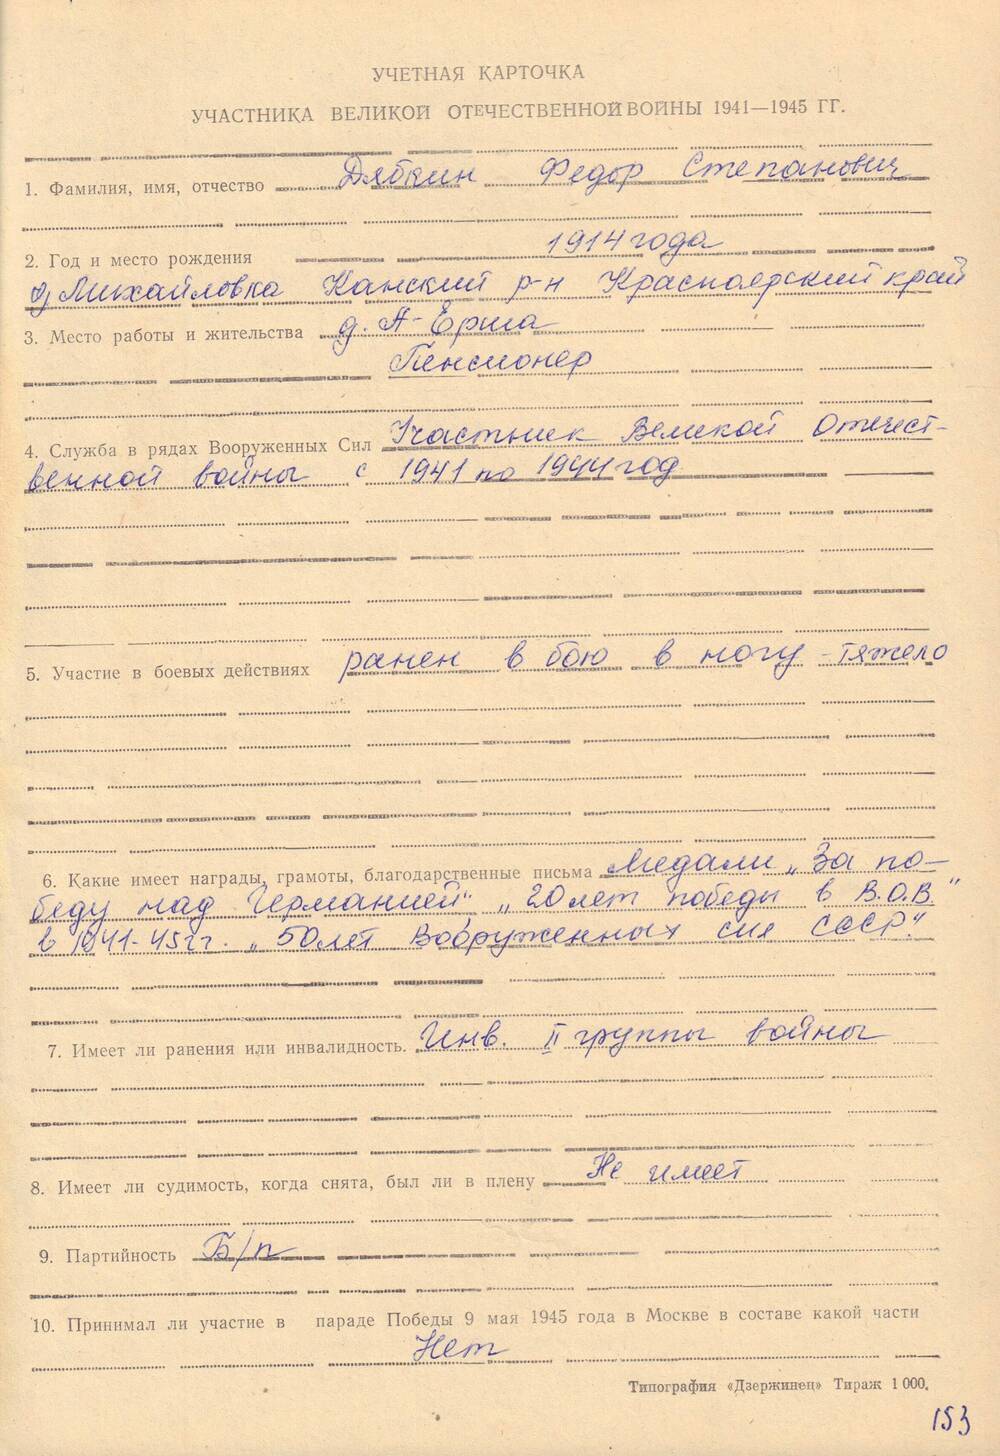 УЧЕТНАЯ КАРТОЧКА
УЧАСТНИКА ВЕЛИКОЙ ОТЕЧЕСТВЕННОЙ ВОЙНЫ 1941—1945 ГГ.
1. Фамилия, имя, отчество Дябкин Федор Степанович
2. Год и место рождения 1914 года
д Михайловка Канский р-н Красноярский край
3. Место работы и жительства д. А-Ерша
Пенсионер
4. Служба в рядах Вооруженных Сил Участник Великой Отечест-
венной войны с 1941 по 1944 год
5. Участие в боевых действиях ранен в бою в ногу - тяжело
6. Какие имеет награды, грамоты, благодарственные письма Медали „За по-
беду над Германией", „20 лет победы в В.О.В."
в 1941-45 гг. „50 лет Вооруженных сил СССР"
7. Имеет ли ранения или инвалидность. Инв. II группы войны
8. Имеет ли судимость, когда снята, был ли в плену Не имеет
9. Партийность Б/п
10. Принимал ли участие в параде Победы 9 мая 1945 года в Москве в составе какой части
Нет
Типография «Дзержинец» Тираж 1 000.
153